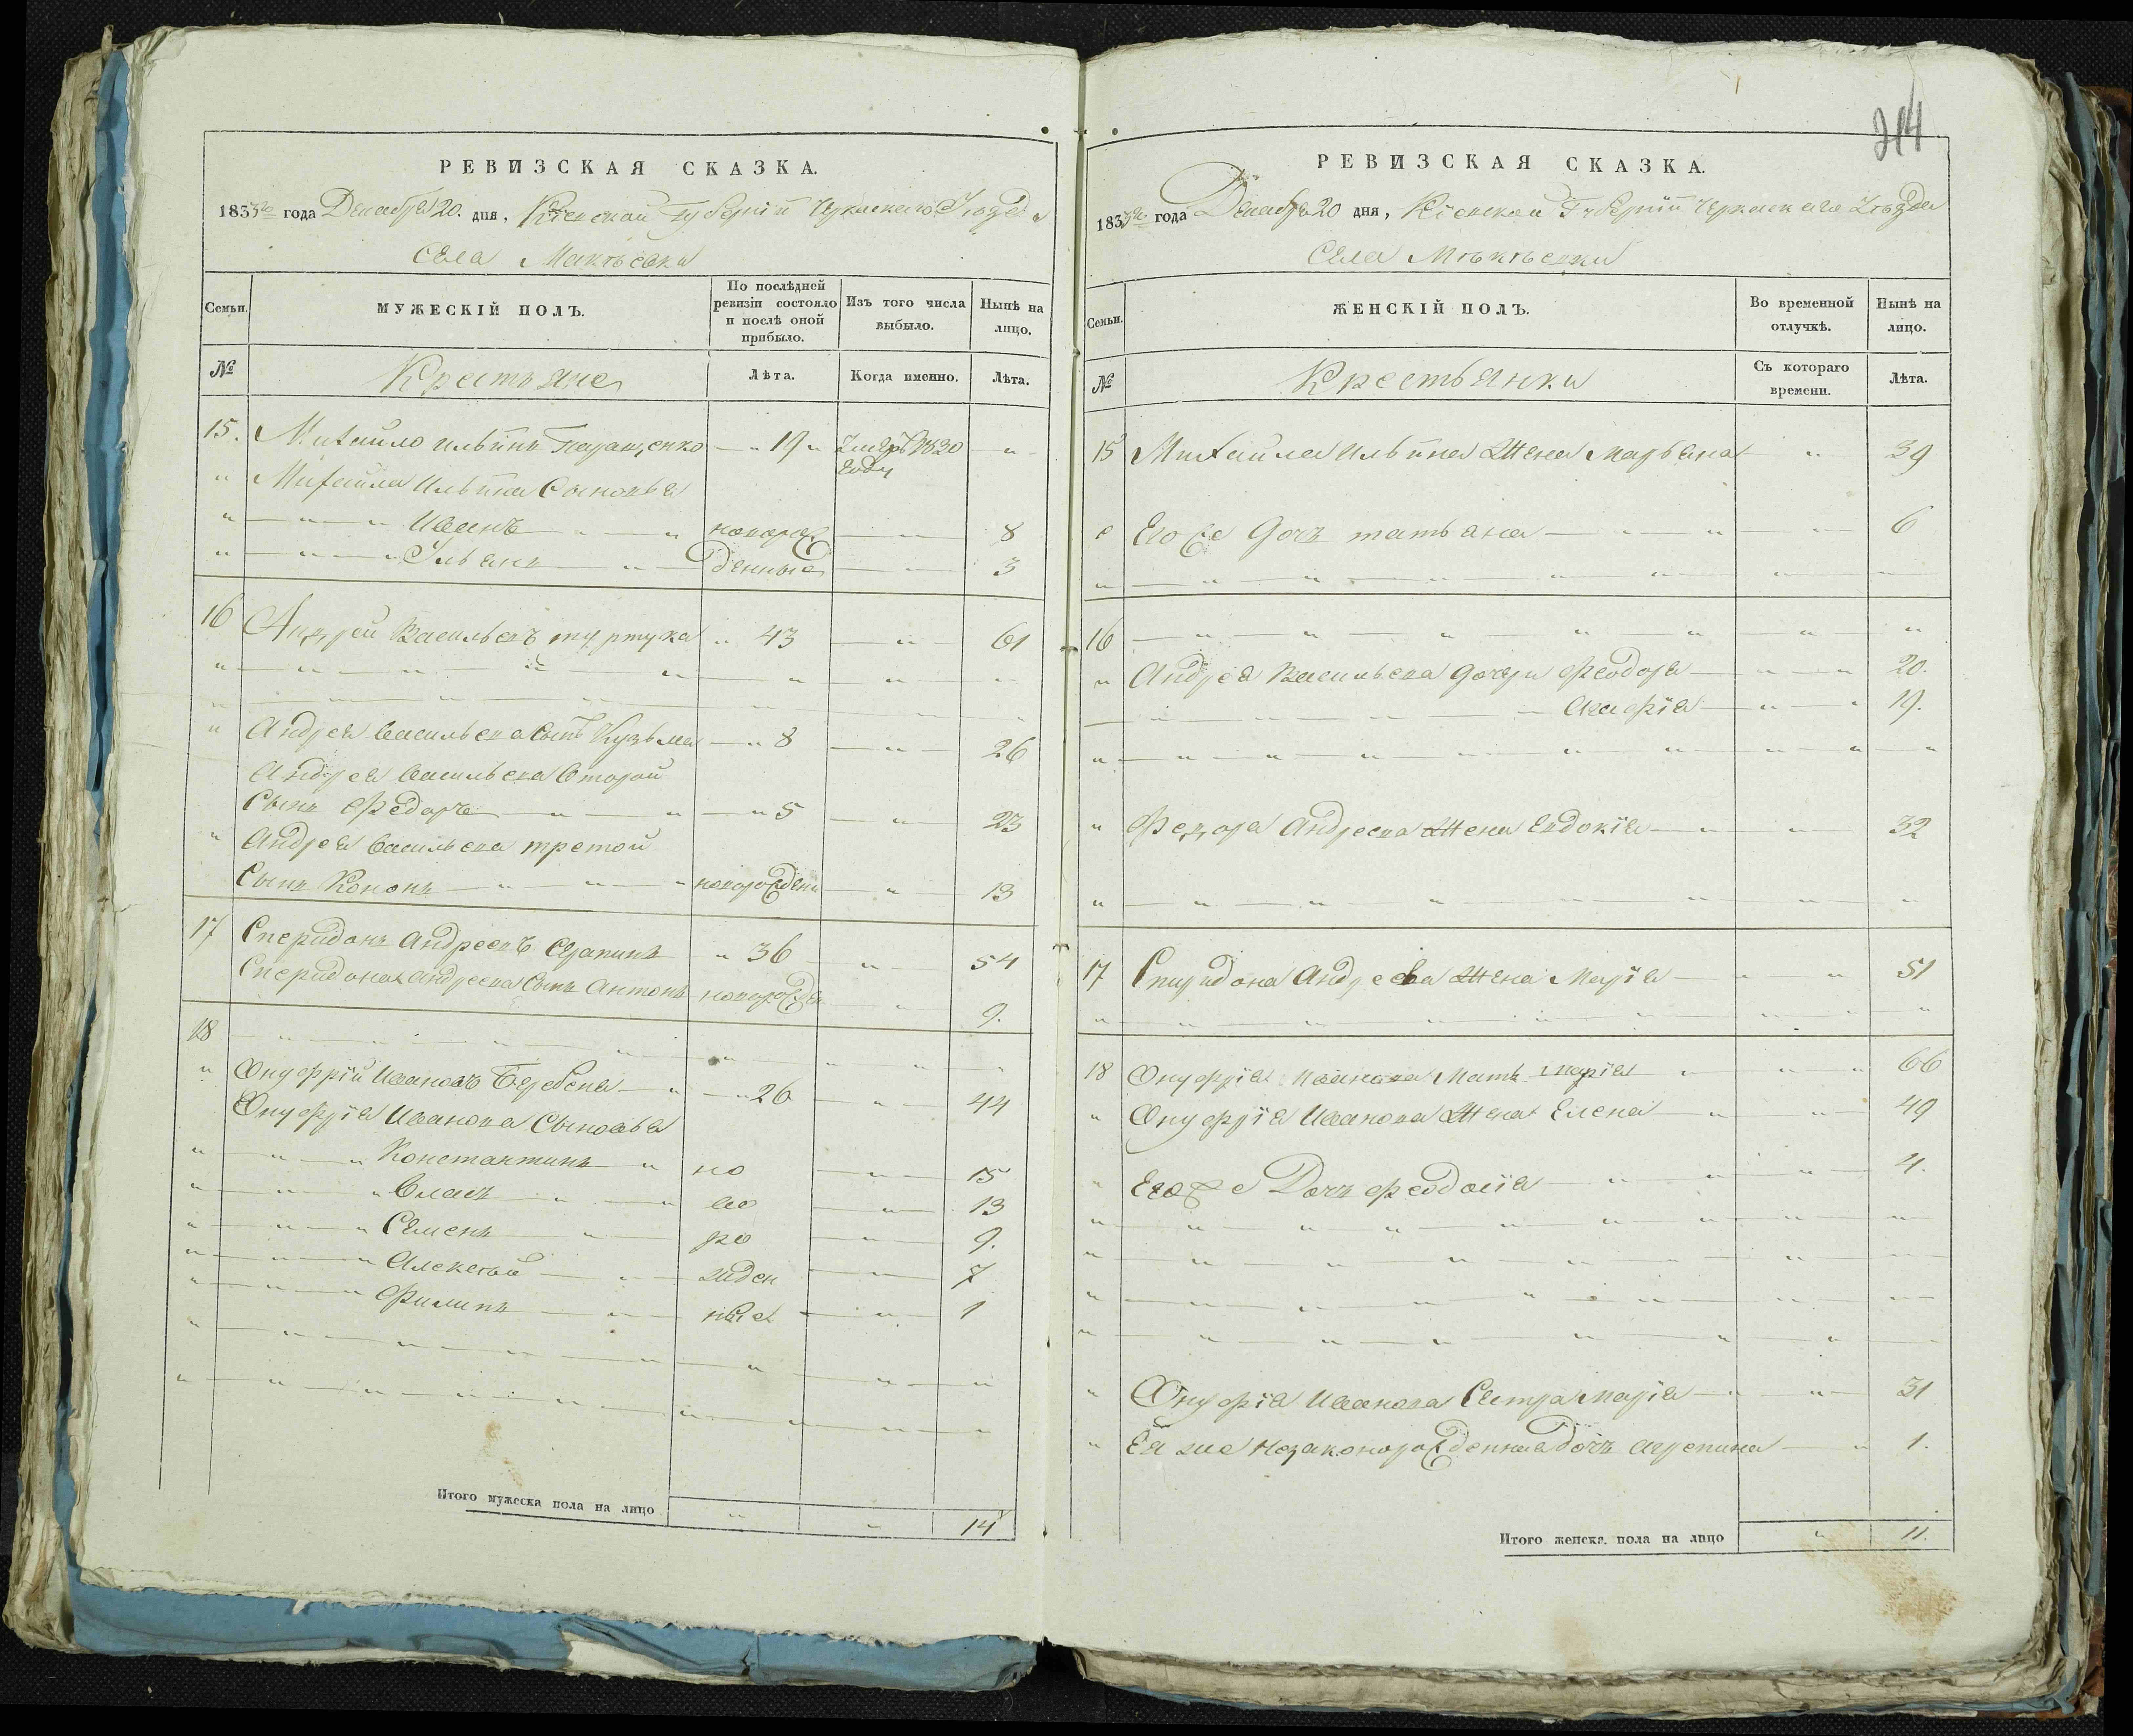 РЕВИЗСКАЯ СКАЗКА.
183 года Декабря 20. дня, Кіевской Губерніи Черкаскаго Уезда
Села Макѣевки
Семьи.
МУЖЕСКІЙ ПОЛЪ.
По послѣдней ревизіи состояло и послѣ оной прибыло.
Изъ того числа выбыло.
Нынѣ на лицо.
№
Крестьяне
Лѣта.
Когда именно.
Лѣта.
15. Михайло Ильинъ 19 1830
году
Михайла Ильина Сыновья
Иванъ новорож 8
денные 3
16 Андрей Васильевъ 43 61
Андрея Васильева Сынъ Кузьма 8 26
Андрея Васильева Второй
Сынъ Федоръ 5 23
Андрея Васильева третой
Сынъ Кононъ новорожден 13
17 Спиридонъ Андреевъ 36 54
Спиридона Андреева Сынъ Антонъ новорожден 9.
18
Онуфрій Ивановъ 26 44
Онуфрія Иванова Сыновья
Константинъ но 15
Власъ во 13
Семенъ ро 9.
Алексѣй жден 7
Филипъ ные 1
Итого мужеска пола на лицо 14
214
РЕВИЗСКАЯ СКАЗКА.
183 года Декабря 20 дня, Кіевской Губерніи Черкаскаго Уезда
Села Мѣкѣевки
Семьи.
ЖЕНСКІЙ ПОЛЪ.
Во временной отлучкѣ.
Нынѣ на лицо.
№
Крестьянки
Съ котораго времени.
Лѣта.
15 Михайла Ильина Жена Марьяна 39
Его же Дочь татьяна 6
16
Андрея Васильева Дочери Феодора 20.
Агафія 19.
Федора Андреева Жена Евдокія 32
17 Спиридона Андреева Жена Марія 51
18 Онуфрія Иванова Мать Марія 66
Онуфрія Иванова Жена Елена 49
Его же Дочь Феодосія 4.
Онуфрія Иванова Сестра Марія 31
Ея же незаконорожденная Дочь Агрепина 1.
Итого женска. пола на лицо 11.